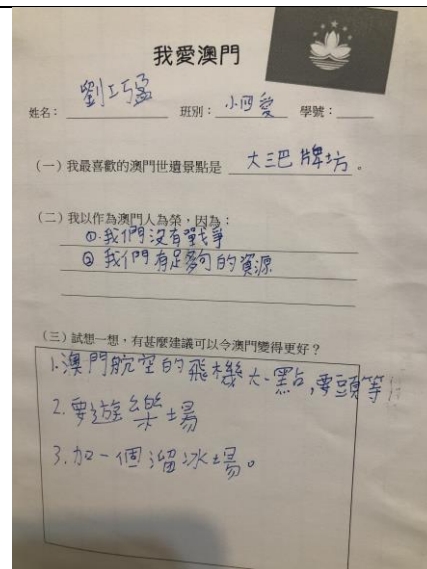 我愛澳門
姓名：劉巧盈 班別：小四愛 學號：
(一) 我最喜歡的澳門世遺景點是 大三巴牌坊。
(二) 我以作為澳門人為榮，因為：
①.我們沒有戰爭
② 我們有足夠的資源
(三) 試想一想，有甚麼建議可以令澳門變得更好？
1.澳門航空的飛機大一點，要頭等
2.要遊樂場
3.加一個溜冰場。